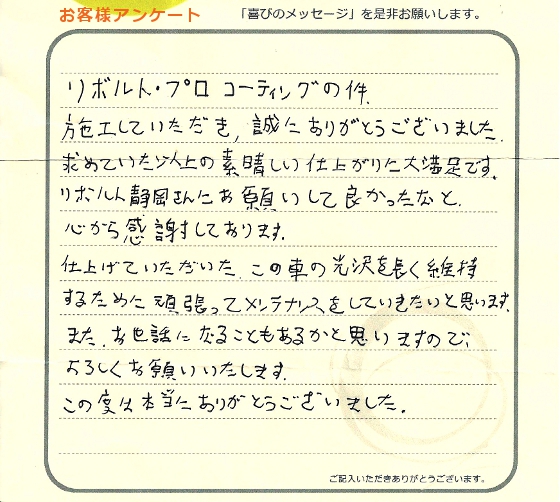 お客様アンケート 「喜びのメッセージ」を是非お願いします。
リボルト・プロ コーティングの件
施工していただき、誠にありがとうございました。
求めていた以上の素晴しい仕上がりに大満足です。
リボルト静岡さんにお願いして良かったなと、
心から感謝しております。
仕上げていただいた、この車の光沢を長く維持
するために頑張ってメンテナンスをしていきたいと思います。
また、お世話になることもあるかと思いますので、
よろしくお願いいたします。
この度は本当にありがとうございました。
ご記入いただきありがとうございます。